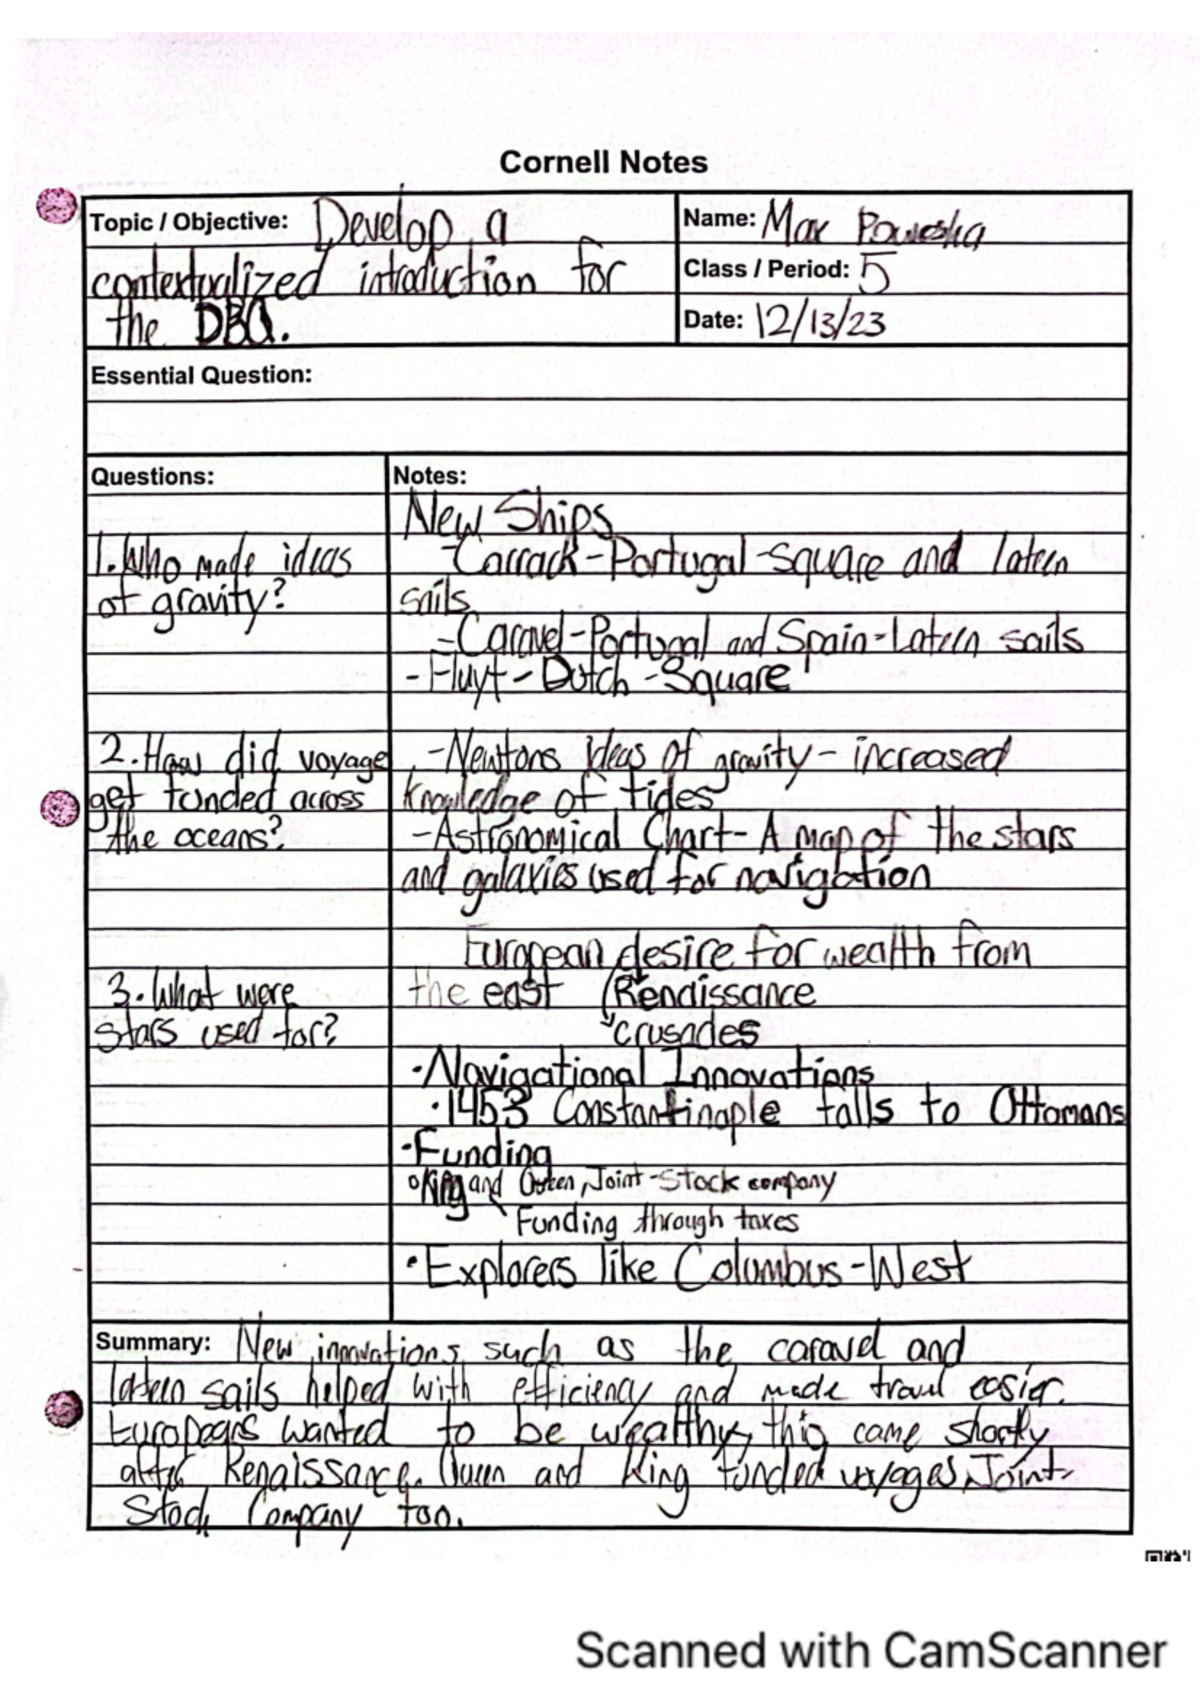 Cornell Notes
Topic / Objective: Develop a
contextualized introduction for
the DBQ.
Name: Max
Class / Period: 5
Date: 12/13/23
Essential Question:
Questions:
1. Who made ideas
of gravity?
2. How did voyage
get funded across
the oceans?
3. What were
stars used for?
Notes:
New Ships
-Carrack-Portugal-square and lateen
sails
-Caravel-Portugal and Spain-Lateen sails
-Fluyt-Dutch-Square
-Newtons ideas of gravity- increased
knowledge of tides
-Astronomical Chart- A map of the stars
and galaxies used for navigation
European desire for wealth from
the east Renaissance
crusades
•Navigational Innovations
•1453 Constantinople falls to Ottomans
•Funding
King and Queen, Joint-Stock company
Funding through taxes
•Explorers like Columbus-West
Summary: New innovations, such as the caravel and
lateen sails helped with efficiency and made travel easier.
Europeans wanted to be wealthy, this came shortly
after Renaissance. Queen and King funded voyages, Joint-
Stock Company too.
Scanned with CamScanner